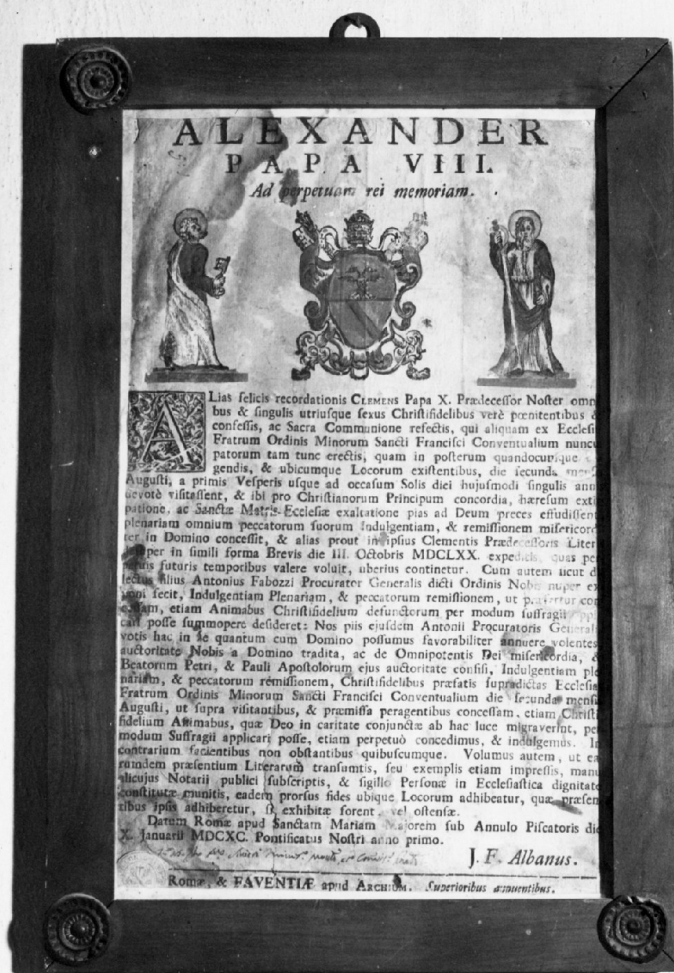 ALEXANDER
PAPA VIII.
Ad perpetuam rei memoriam.
ALias felicis recordationis CLEMENS Papa X. Prædecessor Noster omni
bus & singulis utriusque sexus Christifidelibus verè pœnitentibus &
confessis, ac Sacra Communione refectis, qui aliquam ex Ecclesi
Fratrum Ordinis Minorum Sancti Francisci Conventualium nuncu
patorum tam tunc erectis, quam in posterum quandocumque
gendis, & ubicumque Locorum existentibus, die secunda
Augusti, a primis Vesperis usque ad occasum Solis diei hujusmodi singulis ann
devotè visitassent, & ibi pro Christianorum Principum concordia, hæresum exti
patione, ac Sanctæ Matris Ecclesiæ exaltatione pias ad Deum preces effudissent
plenariam omnium peccatorum suorum Indulgentiam, & remissionem misericord
ter in Domino concessit, & alias prout in ipsius Clementis Prædecessoris Liter
per in simili forma Brevis die III. Octobris MDCLXX. expeditis, quas per
futuris temporibus valere voluit, uberius continetur. Cum autem sicut d
lectus filius Antonius Fabozzi Procurator Generalis dicti Ordinis Nobis nuper ex
poni fecit, Indulgentiam Plenariam, & peccatorum remissionem, ut præfertur con
cessam, etiam Animabus Christifidelium defunctorum per modum suffragii
cari posse summopere desideret: Nos piis ejusdem Antonii Procuratoris Generali
votis hac in re quantum cum Domino possumus favorabiliter annuere volentes
auctoritate Nobis a Domino tradita, ac de Omnipotentis Dei misericordia, &
Beatorum Petri, & Pauli Apostolorum ejus auctoritate confisi, Indulgentiam ple
nariam, & peccatorum remissionem, Christifidelibus præfatis supradictas Ecclesia
Fratrum Ordinis Minorum Sancti Francisci Conventualium die secunda mensi
Augusti, ut supra visitantibus, & præmissa peragentibus concessam, etiam Christi
fidelium Animabus, quæ Deo in caritate conjunctæ ab hac luce migraverint, per
modum Suffragii applicari posse, etiam perpetuò concedimus, & indulgemus. In
contrarium facientibus non obstantibus quibuscumque. Volumus autem, ut ea
rumdem præsentium Literarum transumtis, seu exemplis etiam impressis, manu
alicujus Notarii publici subscriptis, & sigillo Personæ in Ecclesiastica dignitate
constitutæ munitis, eadem prorsus fides ubique Locorum adhibeatur, quæ præsen
tibus ipsis adhiberetur, si exhibitæ forent, vel ostensæ.
Datum Romæ apud Sanctam Mariam Majorem sub Annulo Piscatoris die
X. Januarii MDCXC. Pontificatus Nostri anno primo.
J. F. Albanus.
Romæ, & FAVENTIÆ apud ARCHIUM. Superioribus annuentibus.